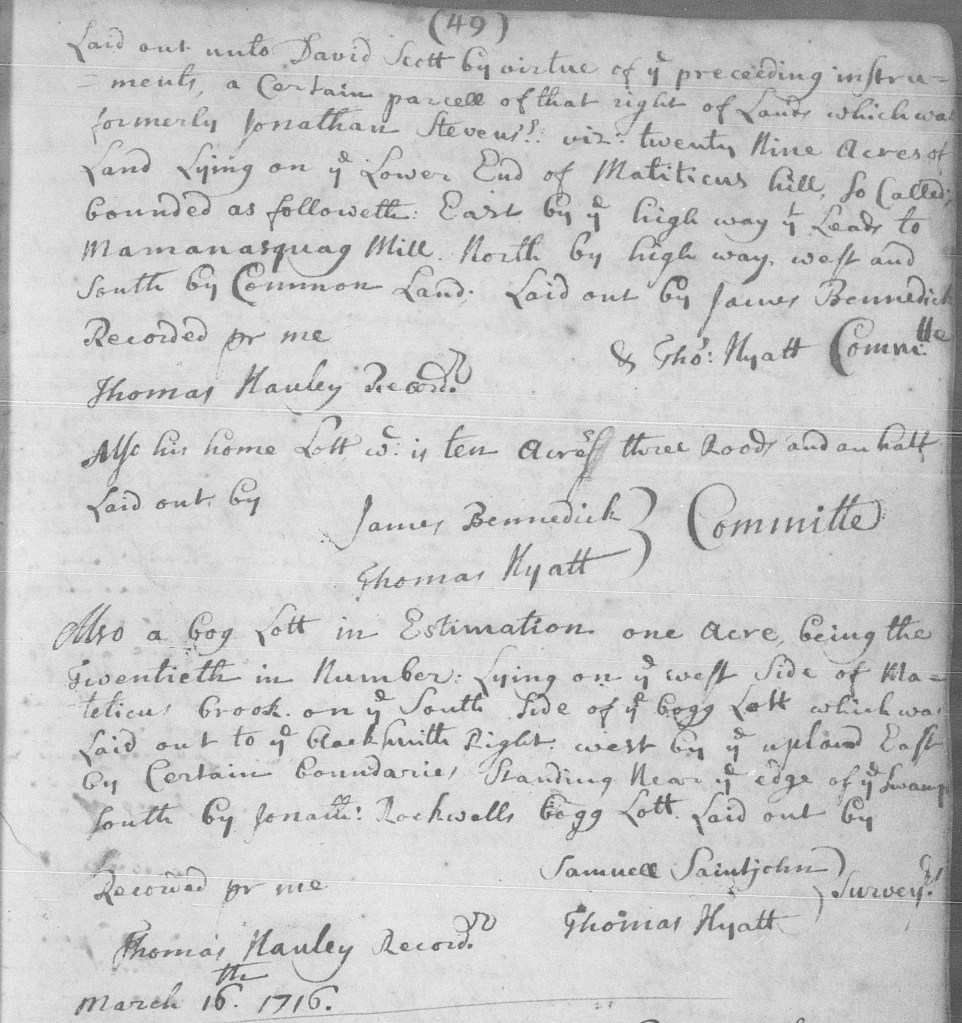 (49)
Laid out unto David Scott by virtue of yᵉ preceeding instru=
=ments, a Certain parcell of that right of Lands which was
formerly Jonathan Stevensˢ: viz: twenty Nine Acres of
Land Lying on yᵉ Lower End of Matiticus hill, So Called;
bounded as followeth: East by yᵉ high way yᵗ Leads to
Mamanasquag Mill. North by high way, west and
South by Common Land; Laid out by James Bennedick
Recorded pr me
& Thoˢ: Hyatt Commⁱᵗᵗᵉ
Thomas Hauley Recordʳ
Also his home Lott wᶜ: is ten Acres three Roods and an half
Laid out by
James Bennedick
Thomas Hyatt } Committe
Also a bog Lott in Estimation one Acre, being the
Twentieth in Number: Lying on yᵉ west Side of Ma=
teticus brook. on yᵉ South Side of yᵉ bogg Lott which was
Laid out to yᵉ blacksmith Right. west by yᵉ upland East
by Certain boundaries Standing Near yᵉ edge of yᵉ Swamp
South by Jonathⁿ: Rockwells bogg Lott. Laid out by
Samuell Saintjohn
Recorded pr me
Thomas Hyatt } Surveyʳˢ
Thomas Hauley Recordʳ
March 16ᵗʰ. 1716.